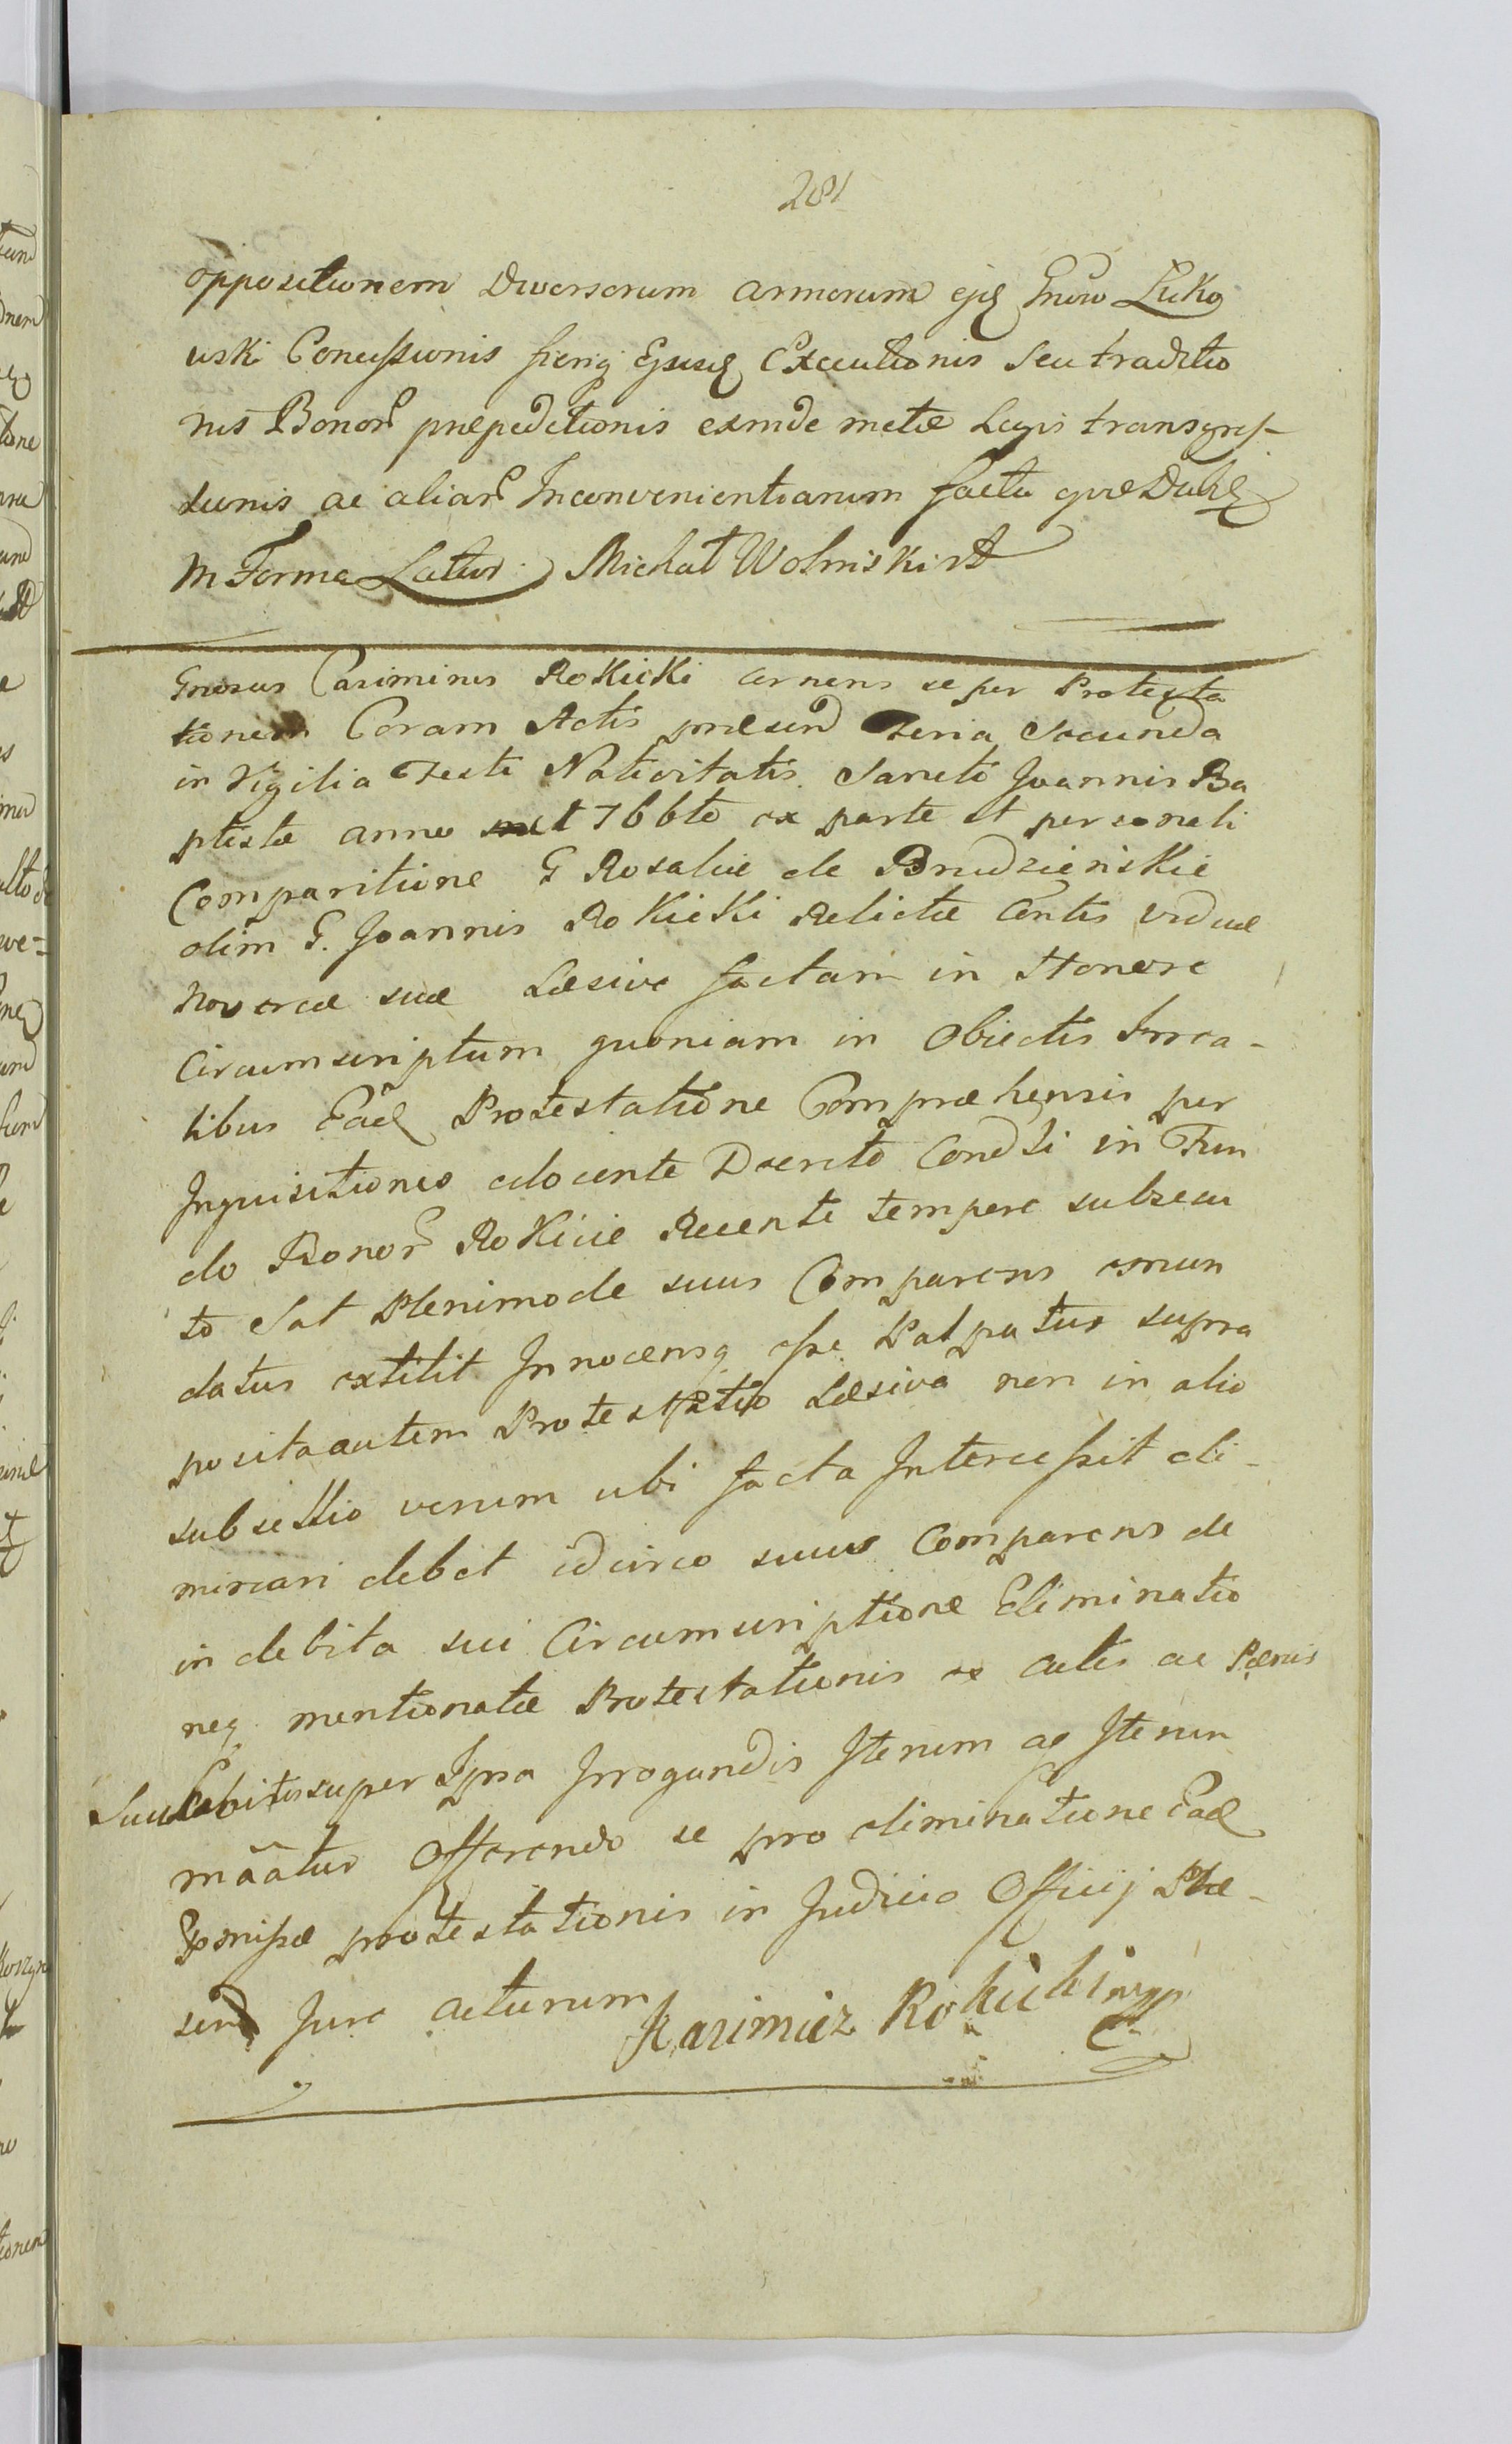 281
oppositionem Diversorum armorum ejq Gnoso Luko
uski Concussionis fieriq Ejusq Executionis Seu traditio
nis Bonor præpeditionis exinde metæ Legis transgres-
sionis ac aliar Inconvenientiarum facta quæ Duh
in Forma Latur Michał Wolinski
Gnosus Casimirus Rokicki cernens se per Protesta
tionem Coram Actis præsend Feria Secunda
in Vigilia Festi Nativitatis Sancti Joannis Ba
ptistæ anno 766to ex parte et personali
Comparitione G Rosaliæ de Brudzieńskie
olim G. Joannis Rokicki Relictæ Contis viduæ
Novercæ suæ Læsive factam in Honore
Circumscriptum quoniam in Obiectis Irrea-
tibus Ead Protestatione Compræhensis per
Inquisitiones edocente Decreto Condti in Fun
do Bonor Rokicie Recenti tempore subsecu
to Sat Plenimode suus Comparens emun
datus extitit Innocensq esse Palpatur supra
posita autem Protestatio Læsiva non in alio
subsellio verum ubi facta Intercessit eli-
minari debet idcirco suus Comparens de
indebita sui Circumscriptione Eliminatio
neq mentionatæ Protestationis ex actis ac Pænis
Succubitis super Ipsa Irrogandis Iterum ac Iterum
mãatur Offerendo se pro eliminatione Ead
Expressæ protestationis in Judicio Officij Præ-
send Jure acturum Kazimierz Rokicki mp